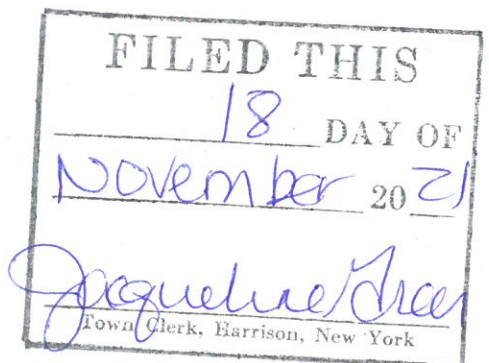 FILED THIS
18 DAY OF
November 2021
Jacqueline
Town Clerk, Harrison, New York